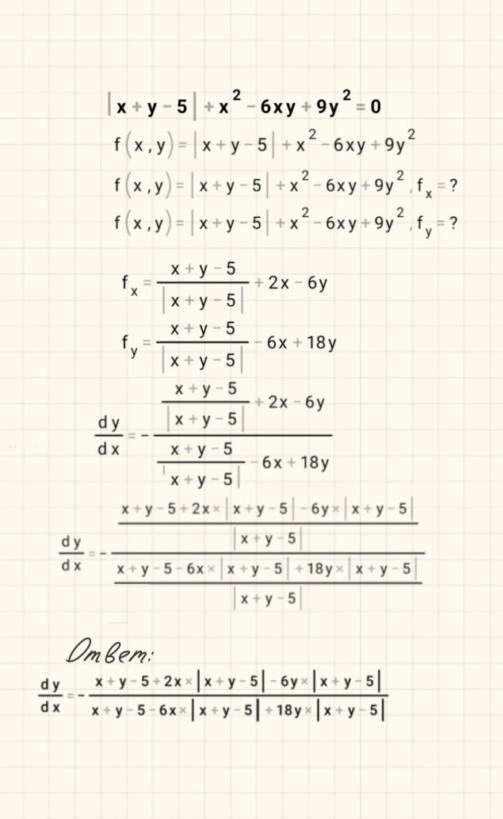 |x + y - 5| + x² - 6xy + 9y² = 0
f(x, y) = |x + y - 5| + x² - 6xy + 9y²
f(x, y) = |x + y - 5| + x² - 6xy + 9y², fₓ = ?
f(x, y) = |x + y - 5| + x² - 6xy + 9y², f_y = ?
fₓ = (x + y - 5)/|x + y - 5| + 2x - 6y
f_y = (x + y - 5)/|x + y - 5| - 6x + 18y
dy/dx = -((x + y - 5)/|x + y - 5| + 2x - 6y)/((x + y - 5)/|x + y - 5| - 6x + 18y)
dy/dx = -((x + y - 5 + 2x × |x + y - 5| - 6y × |x + y - 5|)/|x + y - 5|)/((x + y - 5 - 6x × |x + y - 5| + 18y × |x + y - 5|)/|x + y - 5|)
Ответ:
dy/dx = -(x + y - 5 + 2x × |x + y - 5| - 6y × |x + y - 5|)/(x + y - 5 - 6x × |x + y - 5| + 18y × |x + y - 5|)